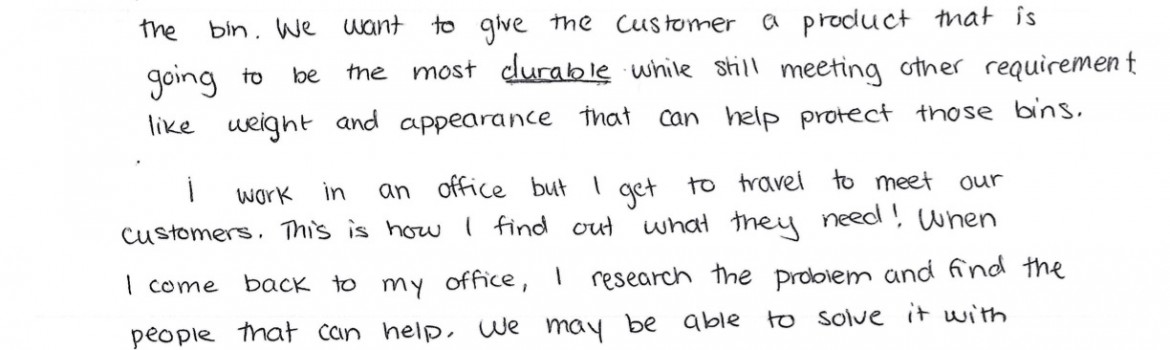 the bin. We want to give the customer a product that is
going to be the most durable while still meeting other requirement
like weight and appearance that can help protect those bins.
I work in an office but I get to travel to meet our
customers. This is how I find out what they need! When
I come back to my office, I research the problem and find the
people that can help. We may be able to solve it with